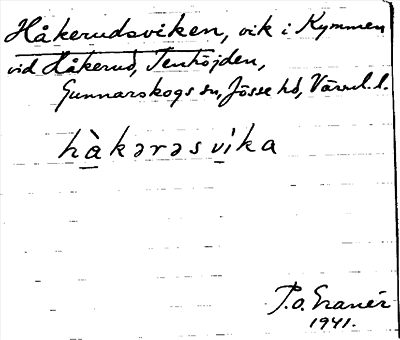 Håkerudsviken, vik i Kymmen
vid Håkerud, Tenhöjden,
Gunnarskogs sn, Jösse hd, Värml. l.
hàkərəsvika
P.o. Granér
1941.